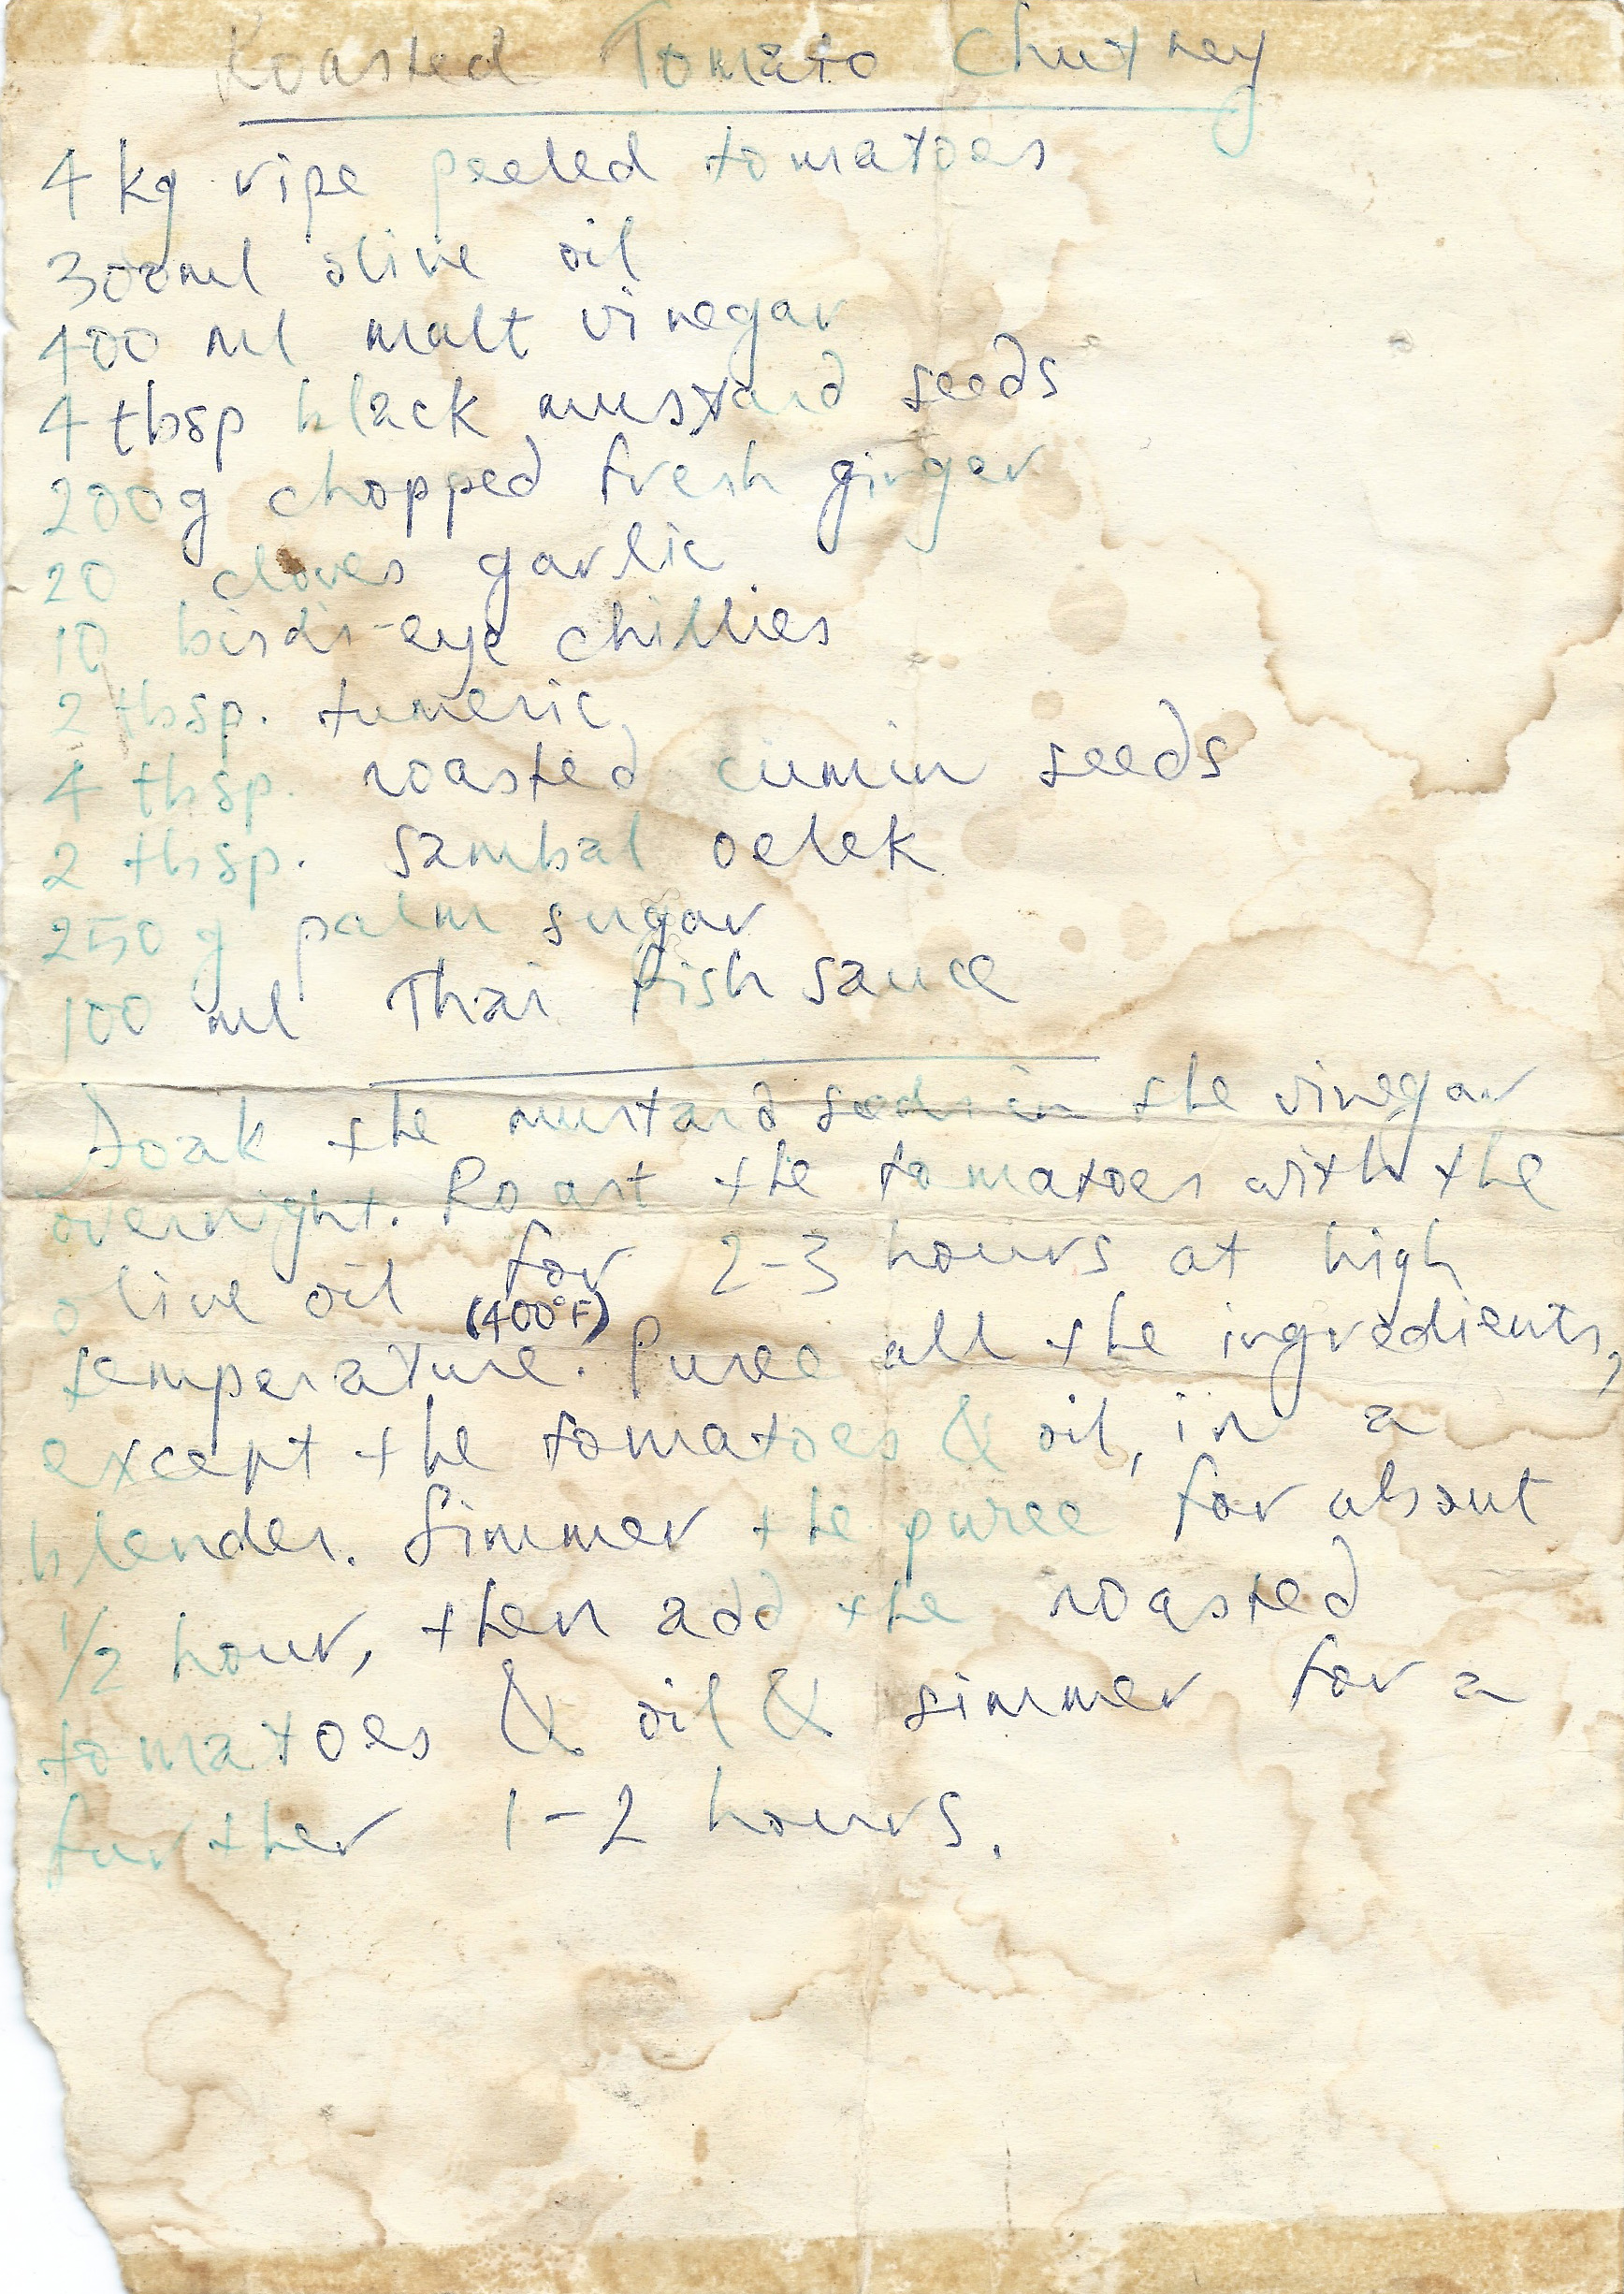 Roasted Tomato Chutney
4 kg ripe peeled tomatoes
300ml olive oil
400 ml malt vinegar
4 tbsp black mustard seeds
200g chopped fresh ginger
20 cloves garlic
10 birds-eye chillies
2 tbsp. tumeric
4 tbsp. roasted cumin seeds
2 tbsp. sambal oelek
250 g palm sugar
100 ml Thai fish sauce
Soak the mustard seeds in the vinegar
overnight. Roast the tomatoes with the
olive oil for 2-3 hours at high
(400°F)
temperature. Puree all the ingredients,
except the tomatoes & oil, in a
blender. Simmer the puree for about
1/2 hour, then add the roasted
tomatoes & oil & simmer for a
further 1-2 hours.